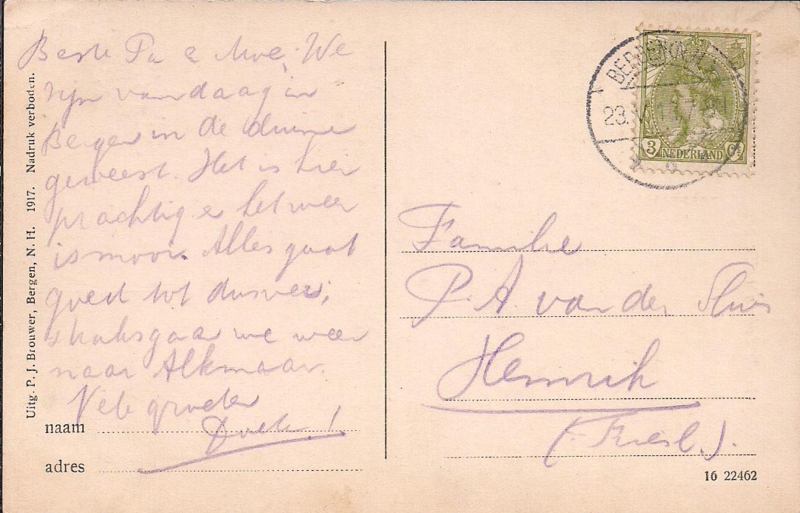 Beste Pa & Moe. We
zijn vandaag in
Bergen in de duinen
geweest. Het is hier
prachtig & het weer
is mooi. Alles gaat
goed tot dusver,
straks gaan we weer
naar Alkmaar.
Vele groeten
naam
adres
Uitg. P. J. Brouwer, Bergen, N. H. 1917. Nadruk verboden.
BERGEN
23.
3 NEDERLAND Ct
Familie
P. A. van der Sluis
Hemrik
(Friesl.).
16 22462